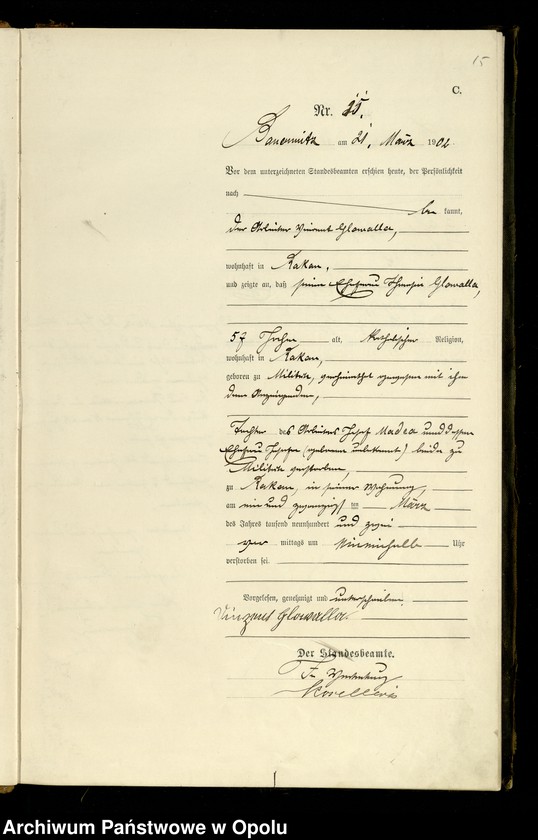 15
C.
Nr. 15.
Bauerwitz am 21. März 1902
Vor dem unterzeichneten Standesbeamten erschien heute, der Persönlichkeit
nach
be kannt,
der Arbeiter Vincent Glowalla,
wohnhaft in Rakau,
und zeigte an, daß seine Ehefrau Glowalla,
57 Jahre alt, katholischer Religion,
wohnhaft in Rakau,
geboren zu Militsch, verheirathet gewesen mit ihm
dem Anzeigenden,
Tochter des Arbeiters Josef Madea und dessen
Ehefrau Josefa (geborene unbekannt) beide zu
Militsch verstorben,
zu Rakau, in seiner Wohnung,
am ein und zwanzigsten März
des Jahres tausend neunhundert und zwei
vor mittags um Uhr
verstorben sei.
Vorgelesen, genehmigt und unterschrieben.
Vinzent Glowalla
Der Standesbeamte.
In Vertretung
Archiwum Państwowe w Opolu